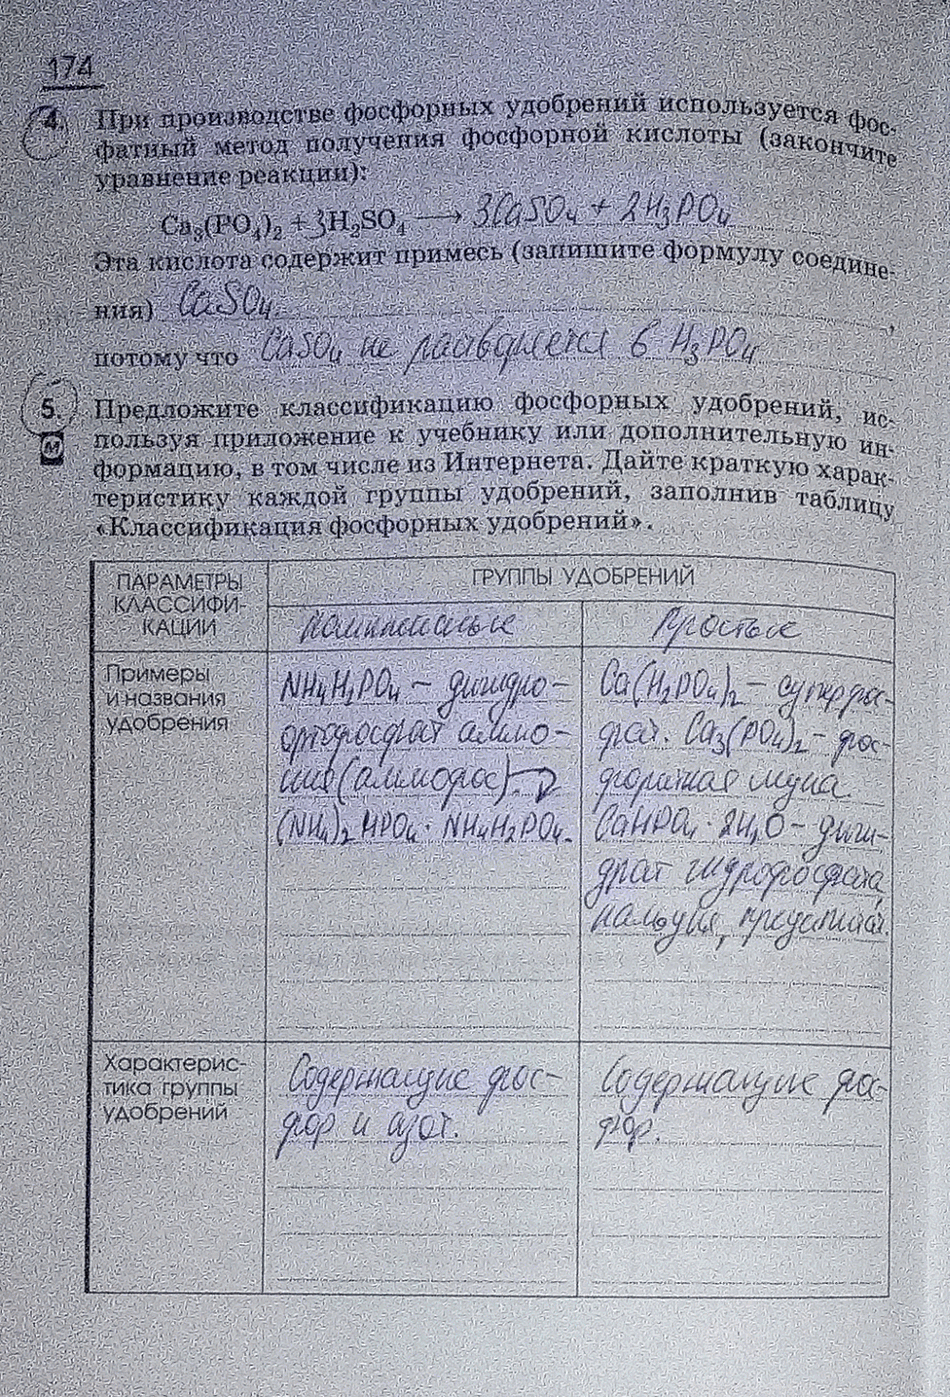 174
4. При производстве фосфорных удобрений используется фос-
фатный метод получения фосфорной кислоты (закончите
уравнение реакции):
Ca₃(PO₄)₂ + 3H₂SO₄ → 3CaSO₄ + 2H₃PO₄
Эта кислота содержит примесь (запишите формулу соедине-
ния) CaSO₄ ,
потому что CaSO₄ не растворяется в H₃PO₄
5. Предложите классификацию фосфорных удобрений, ис-
М пользуя приложение к учебнику или дополнительную ин-
формацию, в том числе из Интернета. Дайте краткую харак-
теристику каждой группы удобрений, заполнив таблицу
«Классификация фосфорных удобрений».
ПАРАМЕТРЫ
КЛАССИФИ-
КАЦИИ
ГРУППЫ УДОБРЕНИЙ
Комплексные
Простые
Примеры
и названия
удобрения
NH₄H₂PO₄ – дигидро-
ортофосфат аммо-
ния (аммофос).
(NH₄)₂HPO₄ · NH₄H₂PO₄.
Ca(H₂PO₄)₂ – суперфос-
фат. Ca₃(PO₄)₂ – фос-
форитная мука.
CaHPO₄ · 2H₂O – диги-
драт гидрофосфата
кальция, преципитат.
Характерис-
тика группы
удобрений
Содержащие фос-
фор и азот.
Содержащие фос-
фор.